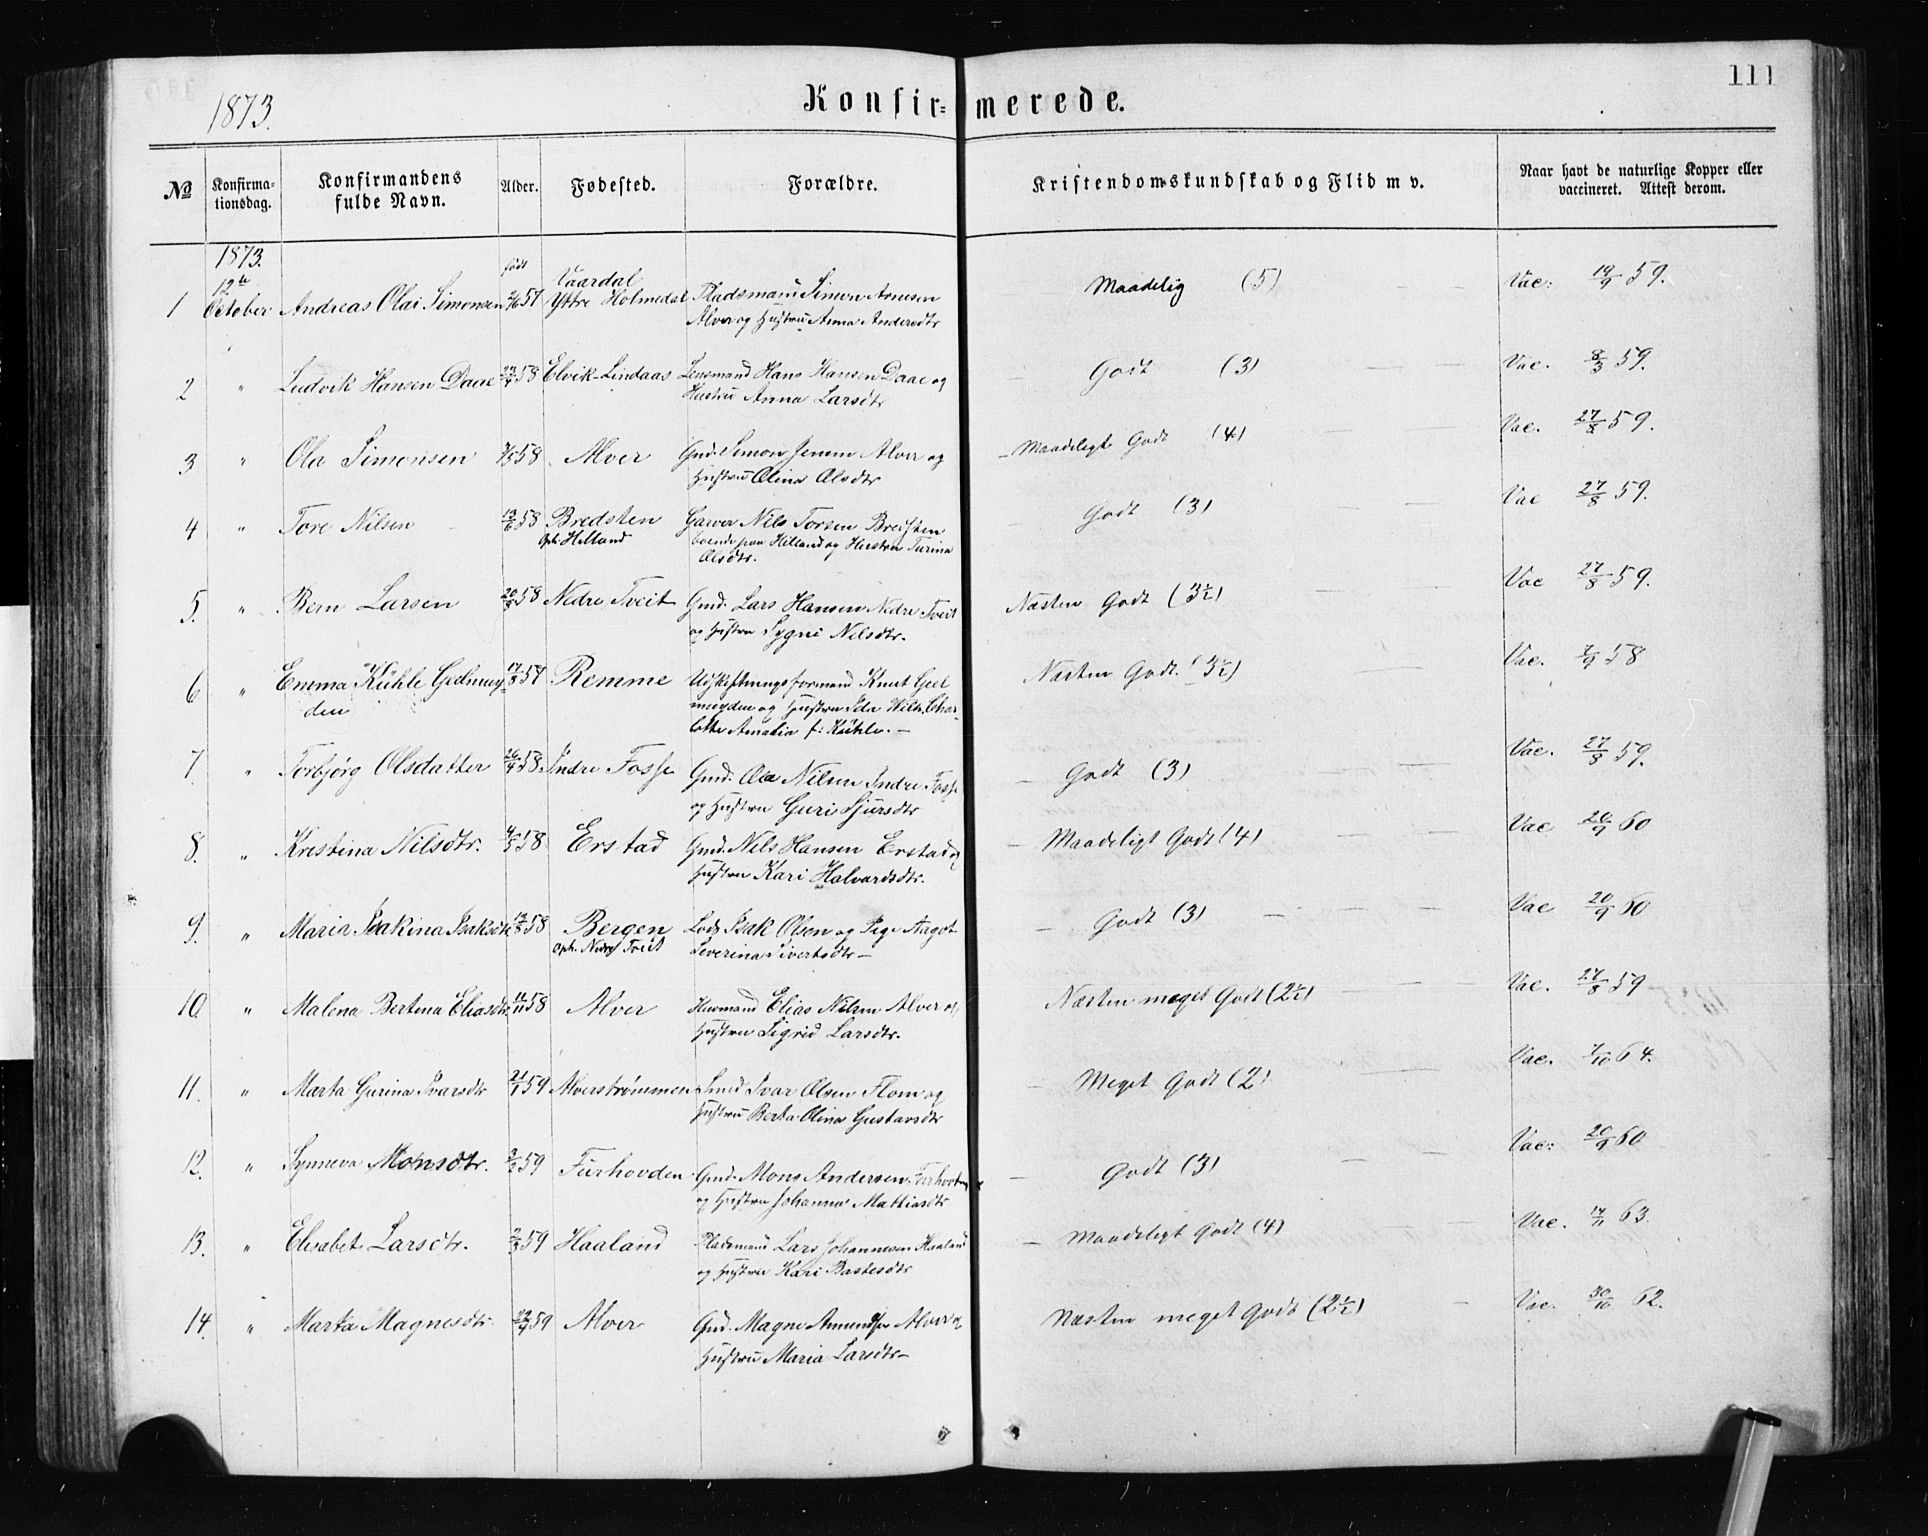 111
1873.
Konfir= merede.
No
Konfirma-
tionsdag.
Konfirmandens
fulde Navn.
Alder.
Fødested.
Forældre.
Kristendomskundskab og Flid m v.
Naar havt de naturlige Kopper eller
vaccineret. Attest derom.
1873.
12te født Vaardal
1 October Andreas Olai Simonsen 57 Yttre Holmedal Pladsmand Simon Arnesen Maadelig (5) Vac: 19/9 59.
Alver og Hustru Anna Andersdtr
2 " Ludvik Hansen Daae 58 Elvik-Lindaas Lensmand Hans Hansen Daae og Godt (3) Vac. 8/3 59.
Hustru Anna Larsdtr
3 " Ola Simonsen 58 Alver Gmd. Simon Jensen Alver og Maadeligt Godt (4) Vac. 27/8 59.
Hustru Olina Olsdtr
4 " Tore Nilsen 13/6 58 Bredsten Garver Nils Torsen Bredsten Godt (3) Vac 27/8 59.
Oph. Helland boende paa Helland og Hustru Turina
Olsdtr.
5. " Bern Larsen 20/8 58 Nedre Tveit Gmd. Lars Hansen Nedre Tveit Næsten Godt (3½) Vac 27/8 59.
og Hustru Sygni Nilsdtr.
6 " Emma Kühle Geelmuy- 57 Remme Udskiftningsformand Knut Geel Næsten Godt. (3½) Vac. 7/9 58
den muyden og Hustru Ida Wilh. Char-
lotte Amalia f: Kühle. —
7. " Torbjørg Olsdatter 26/4 58 Indre Fosse Gmd. Ola Nilsen Indre Fosse Godt (3) Vac. 27/8 59.
og Hustru Guri Sjursdtr
8. " Kristina Nilsdtr. 4/5 58 Erstad Gmd. Nils Hansen Erstad og Maadeligt Godt (4) Vac 20/9 60
Hustru Kari Halvardsdtr.
9. " Maria Isakina Isaksdtr 13/8 58 Bergen Lods Isak Olsen og Pige Aagot Godt (3) Vac 20/9 60
oph. Nedre Tveit Severina Sivertsdtr —
10. " Malena Bertena Eliasdtr. 11/11 58 Alver Huusmand Elias Nilsen Alver og Næsten meget Godt (2½) Vac. 27/8 59
Hustru Sigrid Larsdtr.
11. " Marta Gurina Ivarsdtr 21/1 59 Alverstrømmen Smed Ivar Olsen Flom og Meget Godt (2) Vac. 7/10 64.
Hustru Berta Olina Gustavsdtr
12. " Synneva Monsdtr. 59 Furhovden Gmd. Mons Andersen Furhovden Godt (3) Vac: 20/9 60
og Hustru Johanna Mathiasdtr
13. " Elisabet Larsdtr. 59 Haaland Pladsmand Lars Johannesen Haaland Maadeligt Godt (4) Vac. 14/11 63.
og Hustru Kari Bastesdtr
14. " Marta Magnesdtr. 59 Alver Gmd. Magne Amundsen Alver og Næsten meget Godt (2½) Vac. 30/10 62.
Hustru Maria Larsdtr —